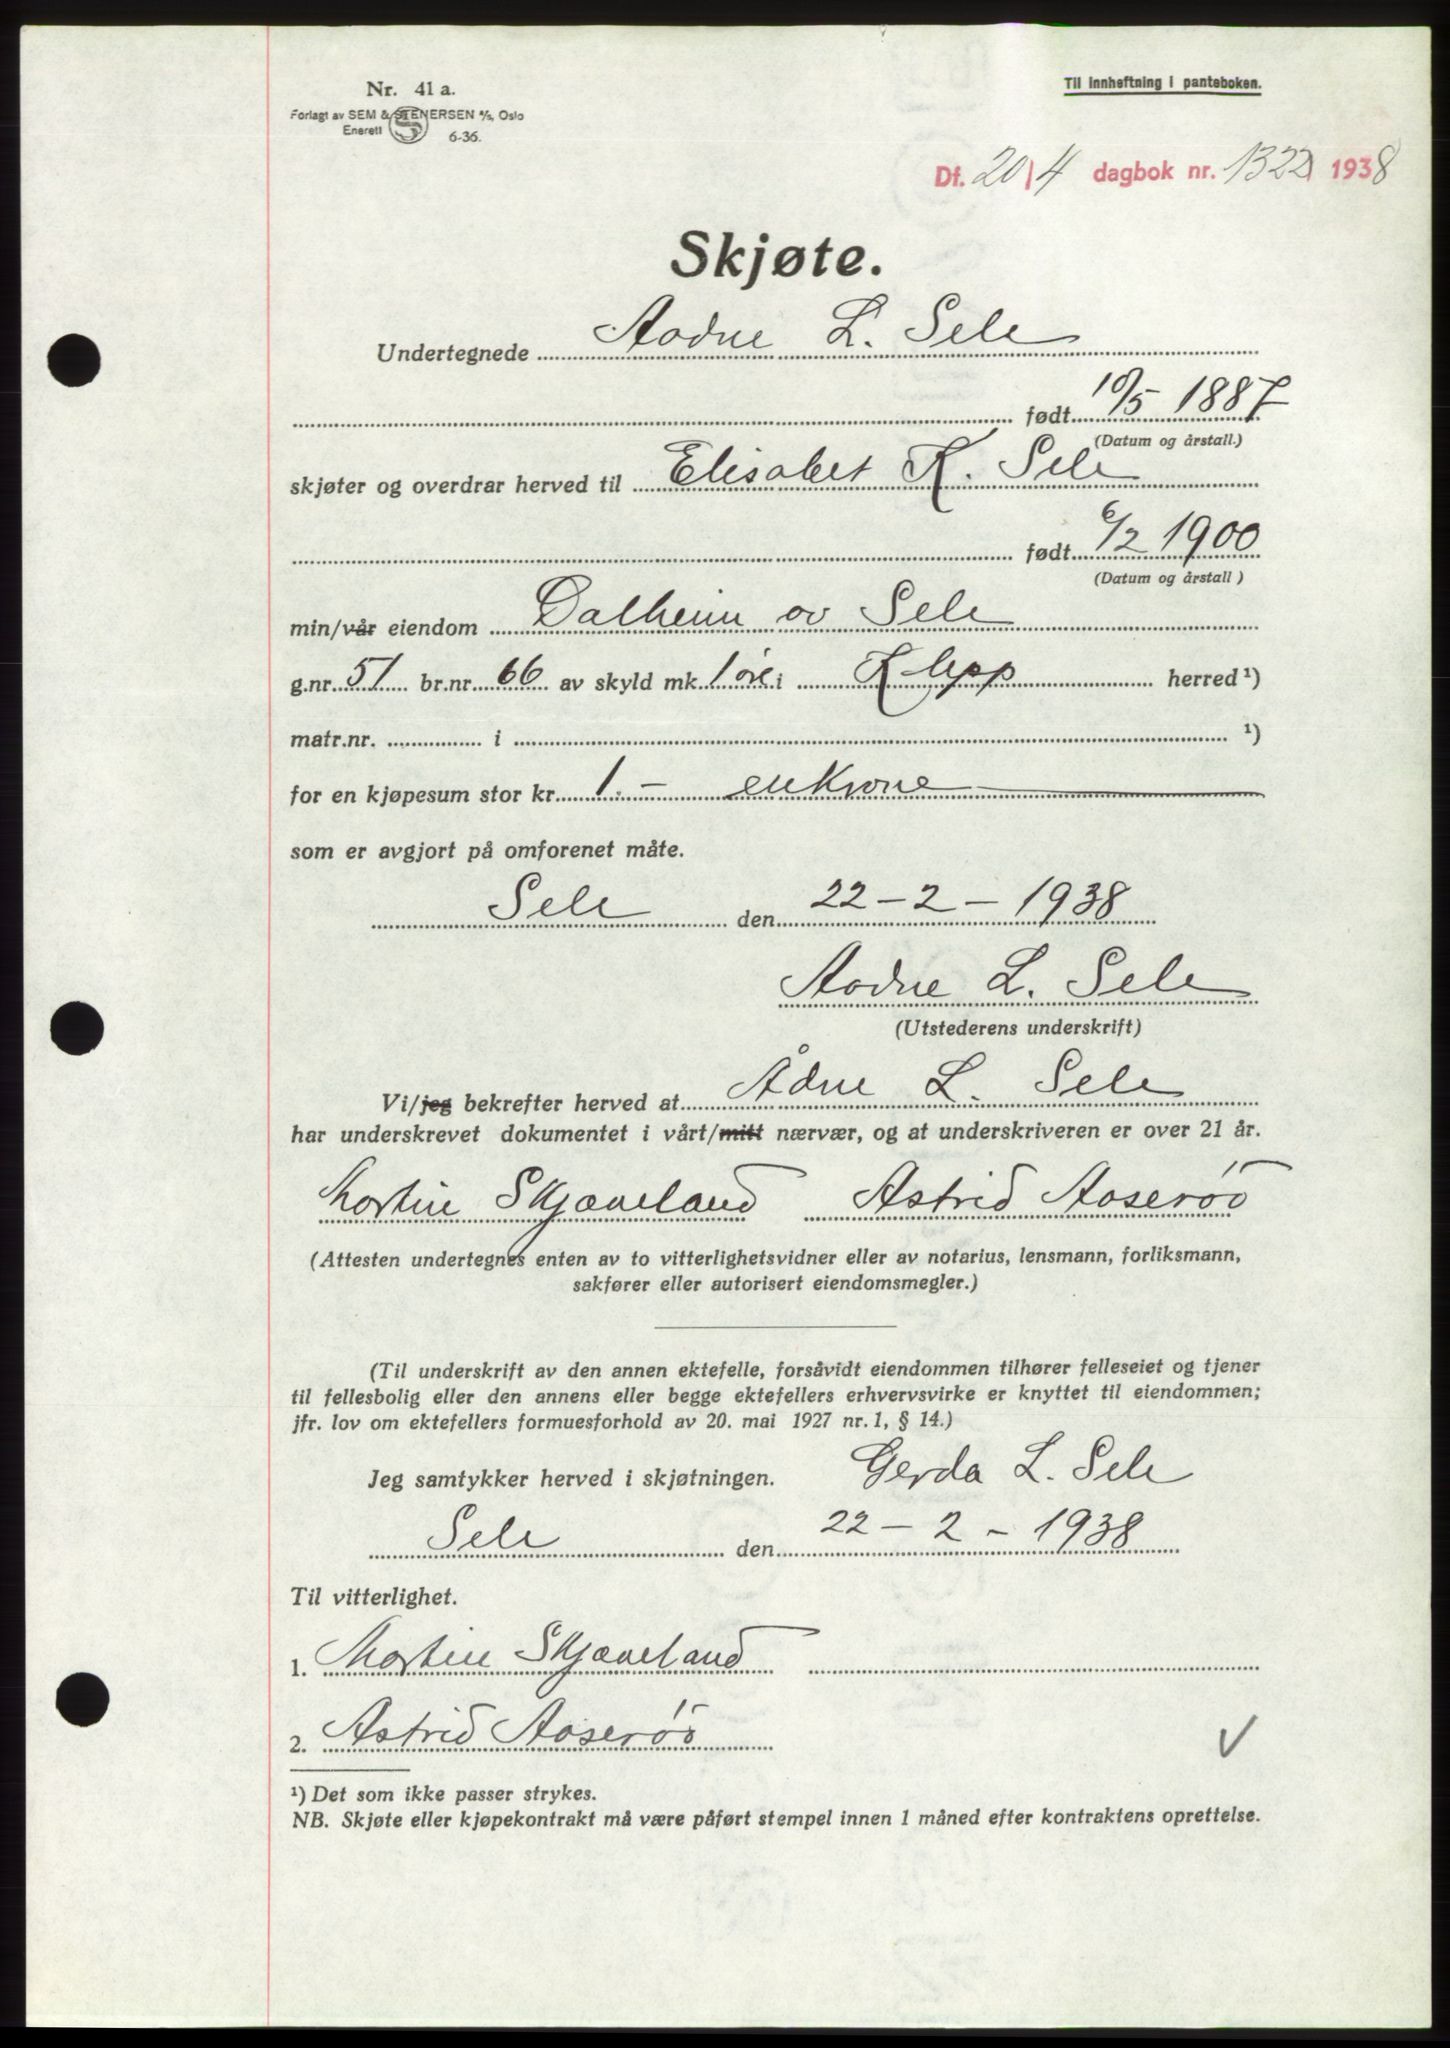 Nr. 41 a.
Forlagt av SEM & STENERSEN A/S, Oslo
Enerett 6-36.
Til innheftning i panteboken.
Df. 20/4 dagbok nr. 1322 1938
Skjøte.
Undertegnede Aadne L. Sele
født 10/5 1887
(Datum og årstall.)
skjøter og overdrar herved til Elisabet K. Sele
født 6/2 1900
(Datum og årstall )
min/vår eiendom Dalheim av Sele
g.nr. 51 br.nr. 66 av skyld mk. 1 øre i Klepp herred ¹)
matr.nr. i ¹)
for en kjøpesum stor kr. 1.- en Krone
som er avgjort på omforenet måte.
Sele den 22-2-1938
Aadne L. Sele
(Utstederens underskrift)
Vi/jeg bekrefter herved at Ådne L. Sele
har underskrevet dokumentet i vårt/mitt nærvær, og at underskriveren er over 21 år.
Martin Skjæveland Astrid Aaserød
(Attesten undertegnes enten av to vitterlighetsvidner eller av notarius, lensmann, forliksmann,
sakfører eller autorisert eiendomsmegler.)
(Til underskrift av den annen ektefelle, forsåvidt eiendommen tilhører felleseiet og tjener
til fellesbolig eller den annens eller begge ektefellers erhvervsvirke er knyttet til eiendommen;
jfr. lov om ektefellers formuesforhold av 20. mai 1927 nr. 1, § 14.)
Jeg samtykker herved i skjøtningen. Gerda L. Sele
Sele den 22-2-1938
Til vitterlighet.
1. Martin Skjæveland
2. Astrid Aaserød
¹) Det som ikke passer strykes.
NB. Skjøte eller kjøpekontrakt må være påført stempel innen 1 måned efter kontraktens oprettelse.